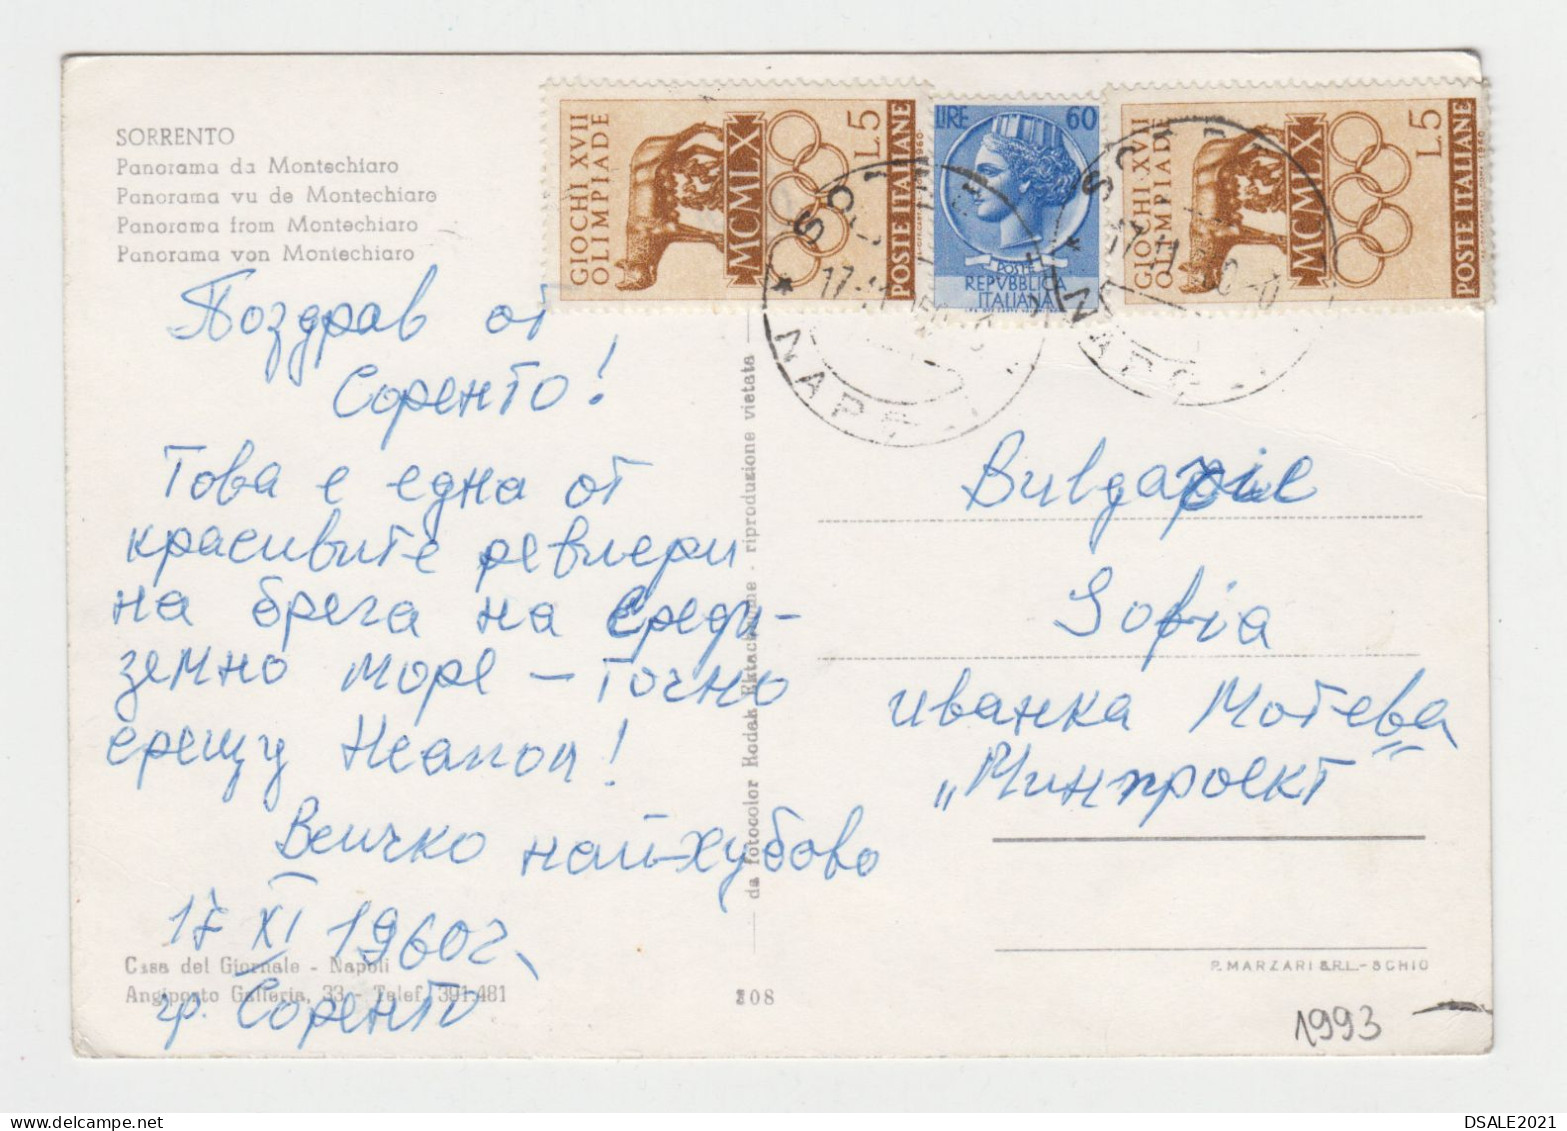 SORRENTO
Panorama da Montechiaro
Panorama vu de Montechiaro
Panorama from Montechiaro
Panorama von Montechiaro
Поздрав от
Соренто!
Това е една от
красивите ревиери
на брега на Среди-
земно море – точно
срещу Неапол!
Всичко най-хубаво
17 XI 1960 г.
гр. Соренто
Casa del Giornale - Napoli
Angiporto Galleria, 33 - Telef. 391.481
da fotocolor Kodak Ektachrome - riproduzione vietata
208
GIOCHI XVII
OLIMPIADE
MCMLX
L.5
POSTE ITALIANE
LIRE 60
POSTE
REPVBBLICA
ITALIANA
GIOCHI XVII
OLIMPIADE
MCMLX
L.5
POSTE ITALIANE
Bulgarie
Sofia
Иванка Мотева
„Минпроект"
P. MARZARI S.R.L. - SCHIO
1993
DSALE2021